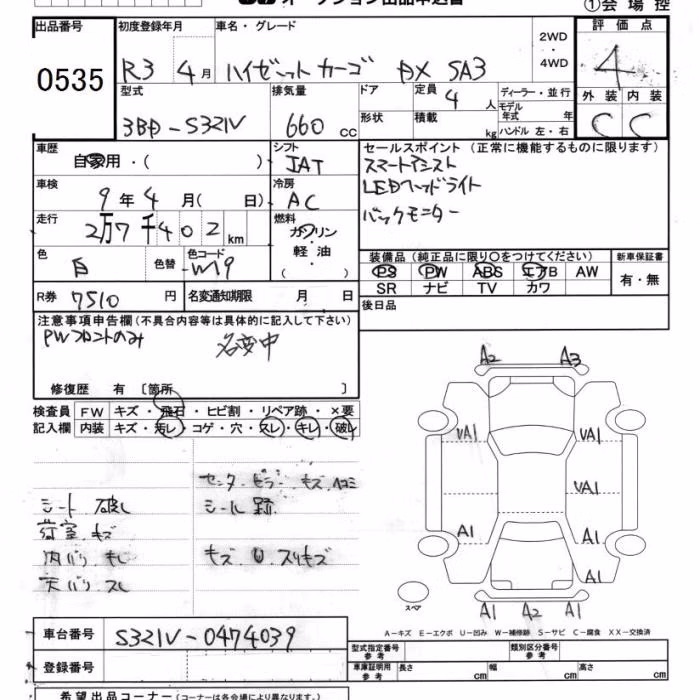 オークション出品申込書
①会場控
出品番号
初度登録年月
車名・グレード
2WD
・
4WD
評価点
0535
R3 4月
ハイゼットカーゴ DX SA3
4
型式
排気量
ドア
定員
4人
ディーラー・並行
モデル年式 年
ハンドル 左・右
外装 内装
3BD-S321V
660 cc
形状
積載
kg
C C
車歴
自家用・( )
シフト
IAT
セールスポイント (正常に機能するものに限ります)
スマートアシスト
LEDヘッドライト
バックモニター
車検
9年 4月( 日)
冷房
AC
走行
2万7千402km
燃料
ガソリン
・
軽油
・
( )
色
白
色替
色コード
W19
装備品 (純正品に限り○をつけてください)
PS PW ABS エアB AW
SR ナビ TV カワ
新車保証書
有・無
R券
7510円
名変通知期限 月 日
後日品
注意事項申告欄 (不具合内容等は具体的に記入して下さい)
PWフロントのみ
名変中
修復歴 有 〔箇所 〕
検査員 FW キズ・飛石・ヒビ割・リペア跡・×要
記入欄 内装 キズ・汚レ・コゲ・穴・スレ・キレ・破レ
センターピラー キズ ヘコミ
シート 破レ
シール跡
荷室 キズ
内バリ キレ
キズ U スリキズ
天バリ スレ
A2 A3
VA1 VA1
VA1
A1 A1
A1
A1 A2 A1
スペア
A-キズ E-エクボ U-凹み W-補修跡 S-サビ C-腐食 XX-交換済
車台番号
S321V-0474039
登録番号
型式指定番号
参考
類別区分番号
参考
車庫証明用
参考
長さ cm 幅 cm 高さ cm
希望出品コーナー (コーナーは各会場により異なります。)